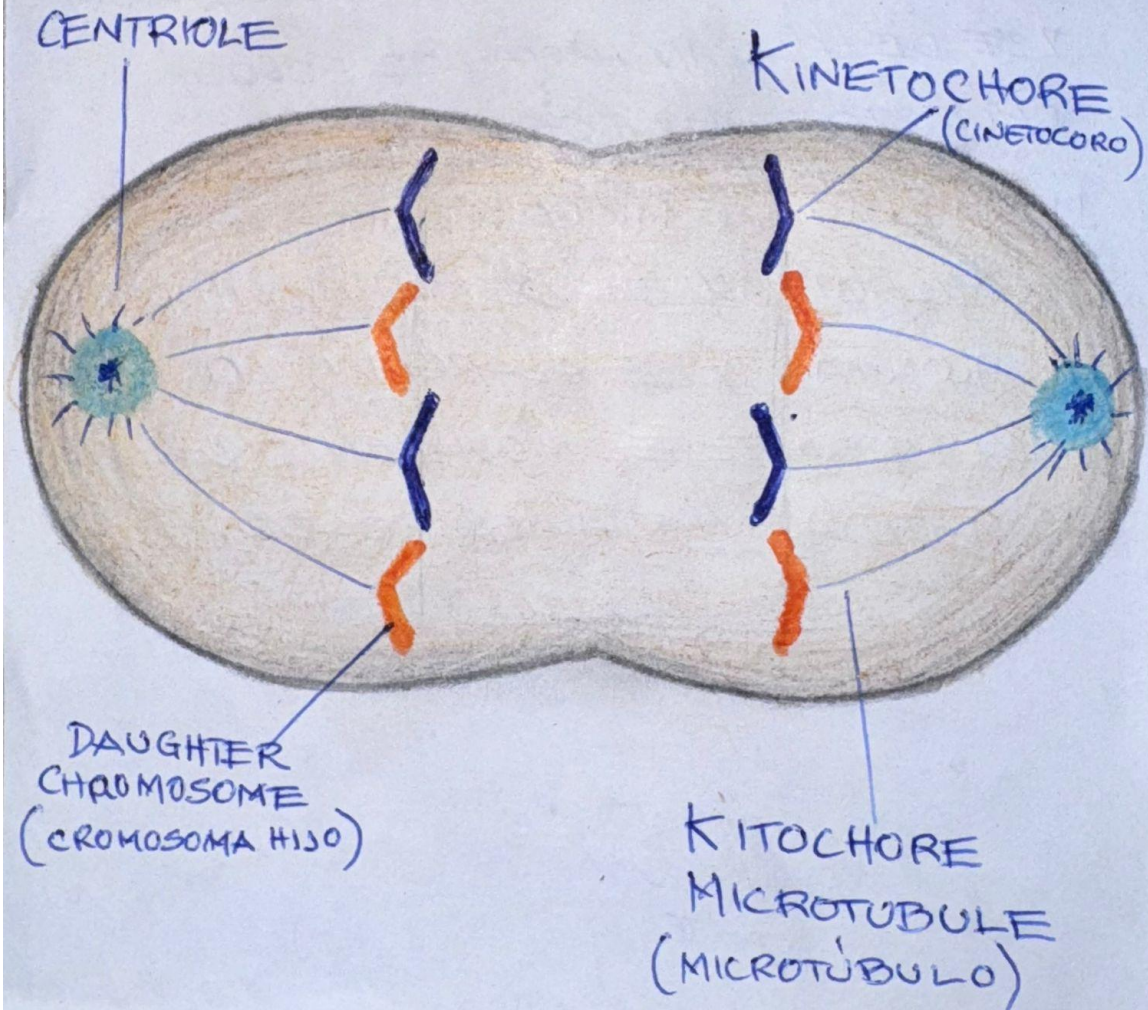 CENTRIOLE
KINETOCHORE
(CINETOCORO)
DAUGHTER
CHROMOSOME
(CROMOSOMA HIJO)
KITOCHORE
MICROTUBULE
(MICROTÚBULO)